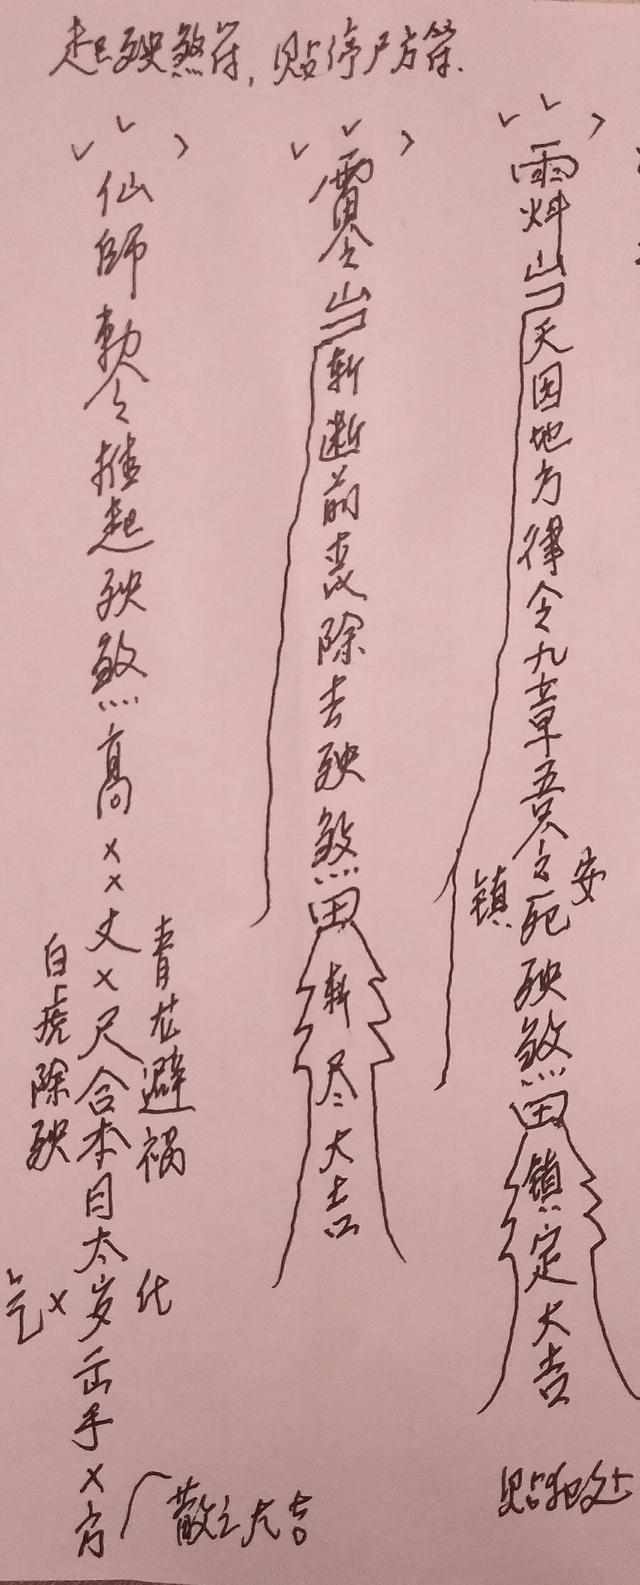 起殃煞符,贴停尸方符.
天因地方律令九章吾只令死殃煞
镇
安
镇定大吉
贴犯处
斩断前丧除去殃煞
斩尽大吉
仙師勅令推起殃煞高××丈×尺合本日太岁出手×方
青龙避祸
白虎除殃
化
散之大吉